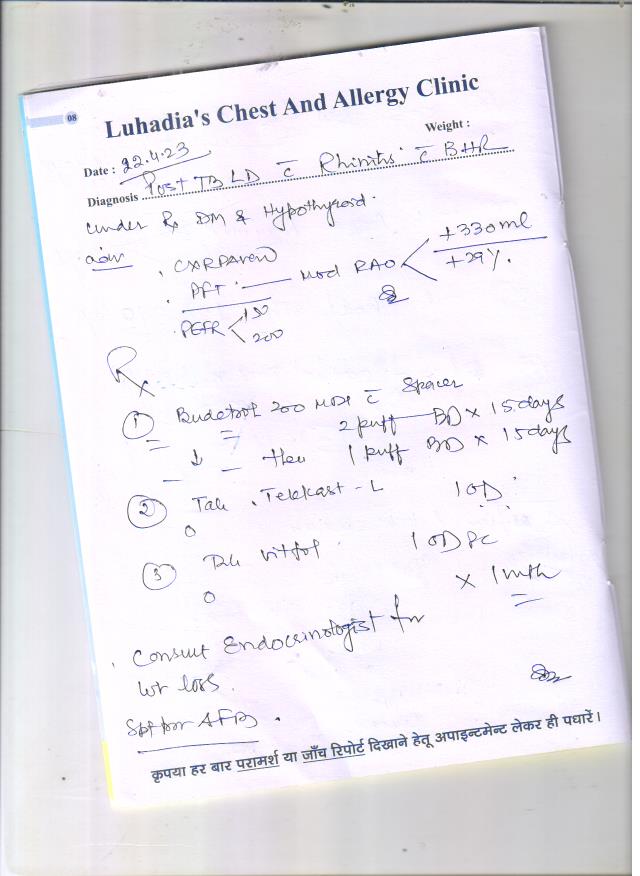 08
Luhadia's Chest And Allergy Clinic
Weight :
Date : 22.4.23
Diagnosis Post TB LD c̄ Rhinitis c̄ BHR
Under Rx DM & Hypothyroid.
adv
. CXRPAview
. PFT . — Mod RAO < +330ml
+29%.
PEFR < 150
200
Rx
① Budetrol 200 MDI c̄ Spacer
2 puff — BD × 15 days
↓ — then 1 puff BD × 15 days
② Tab . Telekast - L 1 OD
③ Tab vitfol . 1 OD PC
× 1 mth
. Consult Endocrinologist for
wt loss .
Spt for AFB .
कृपया हर बार परामर्श या जाँच रिपोर्ट दिखाने हेतू अपाइन्टमेन्ट लेकर ही पधारें।